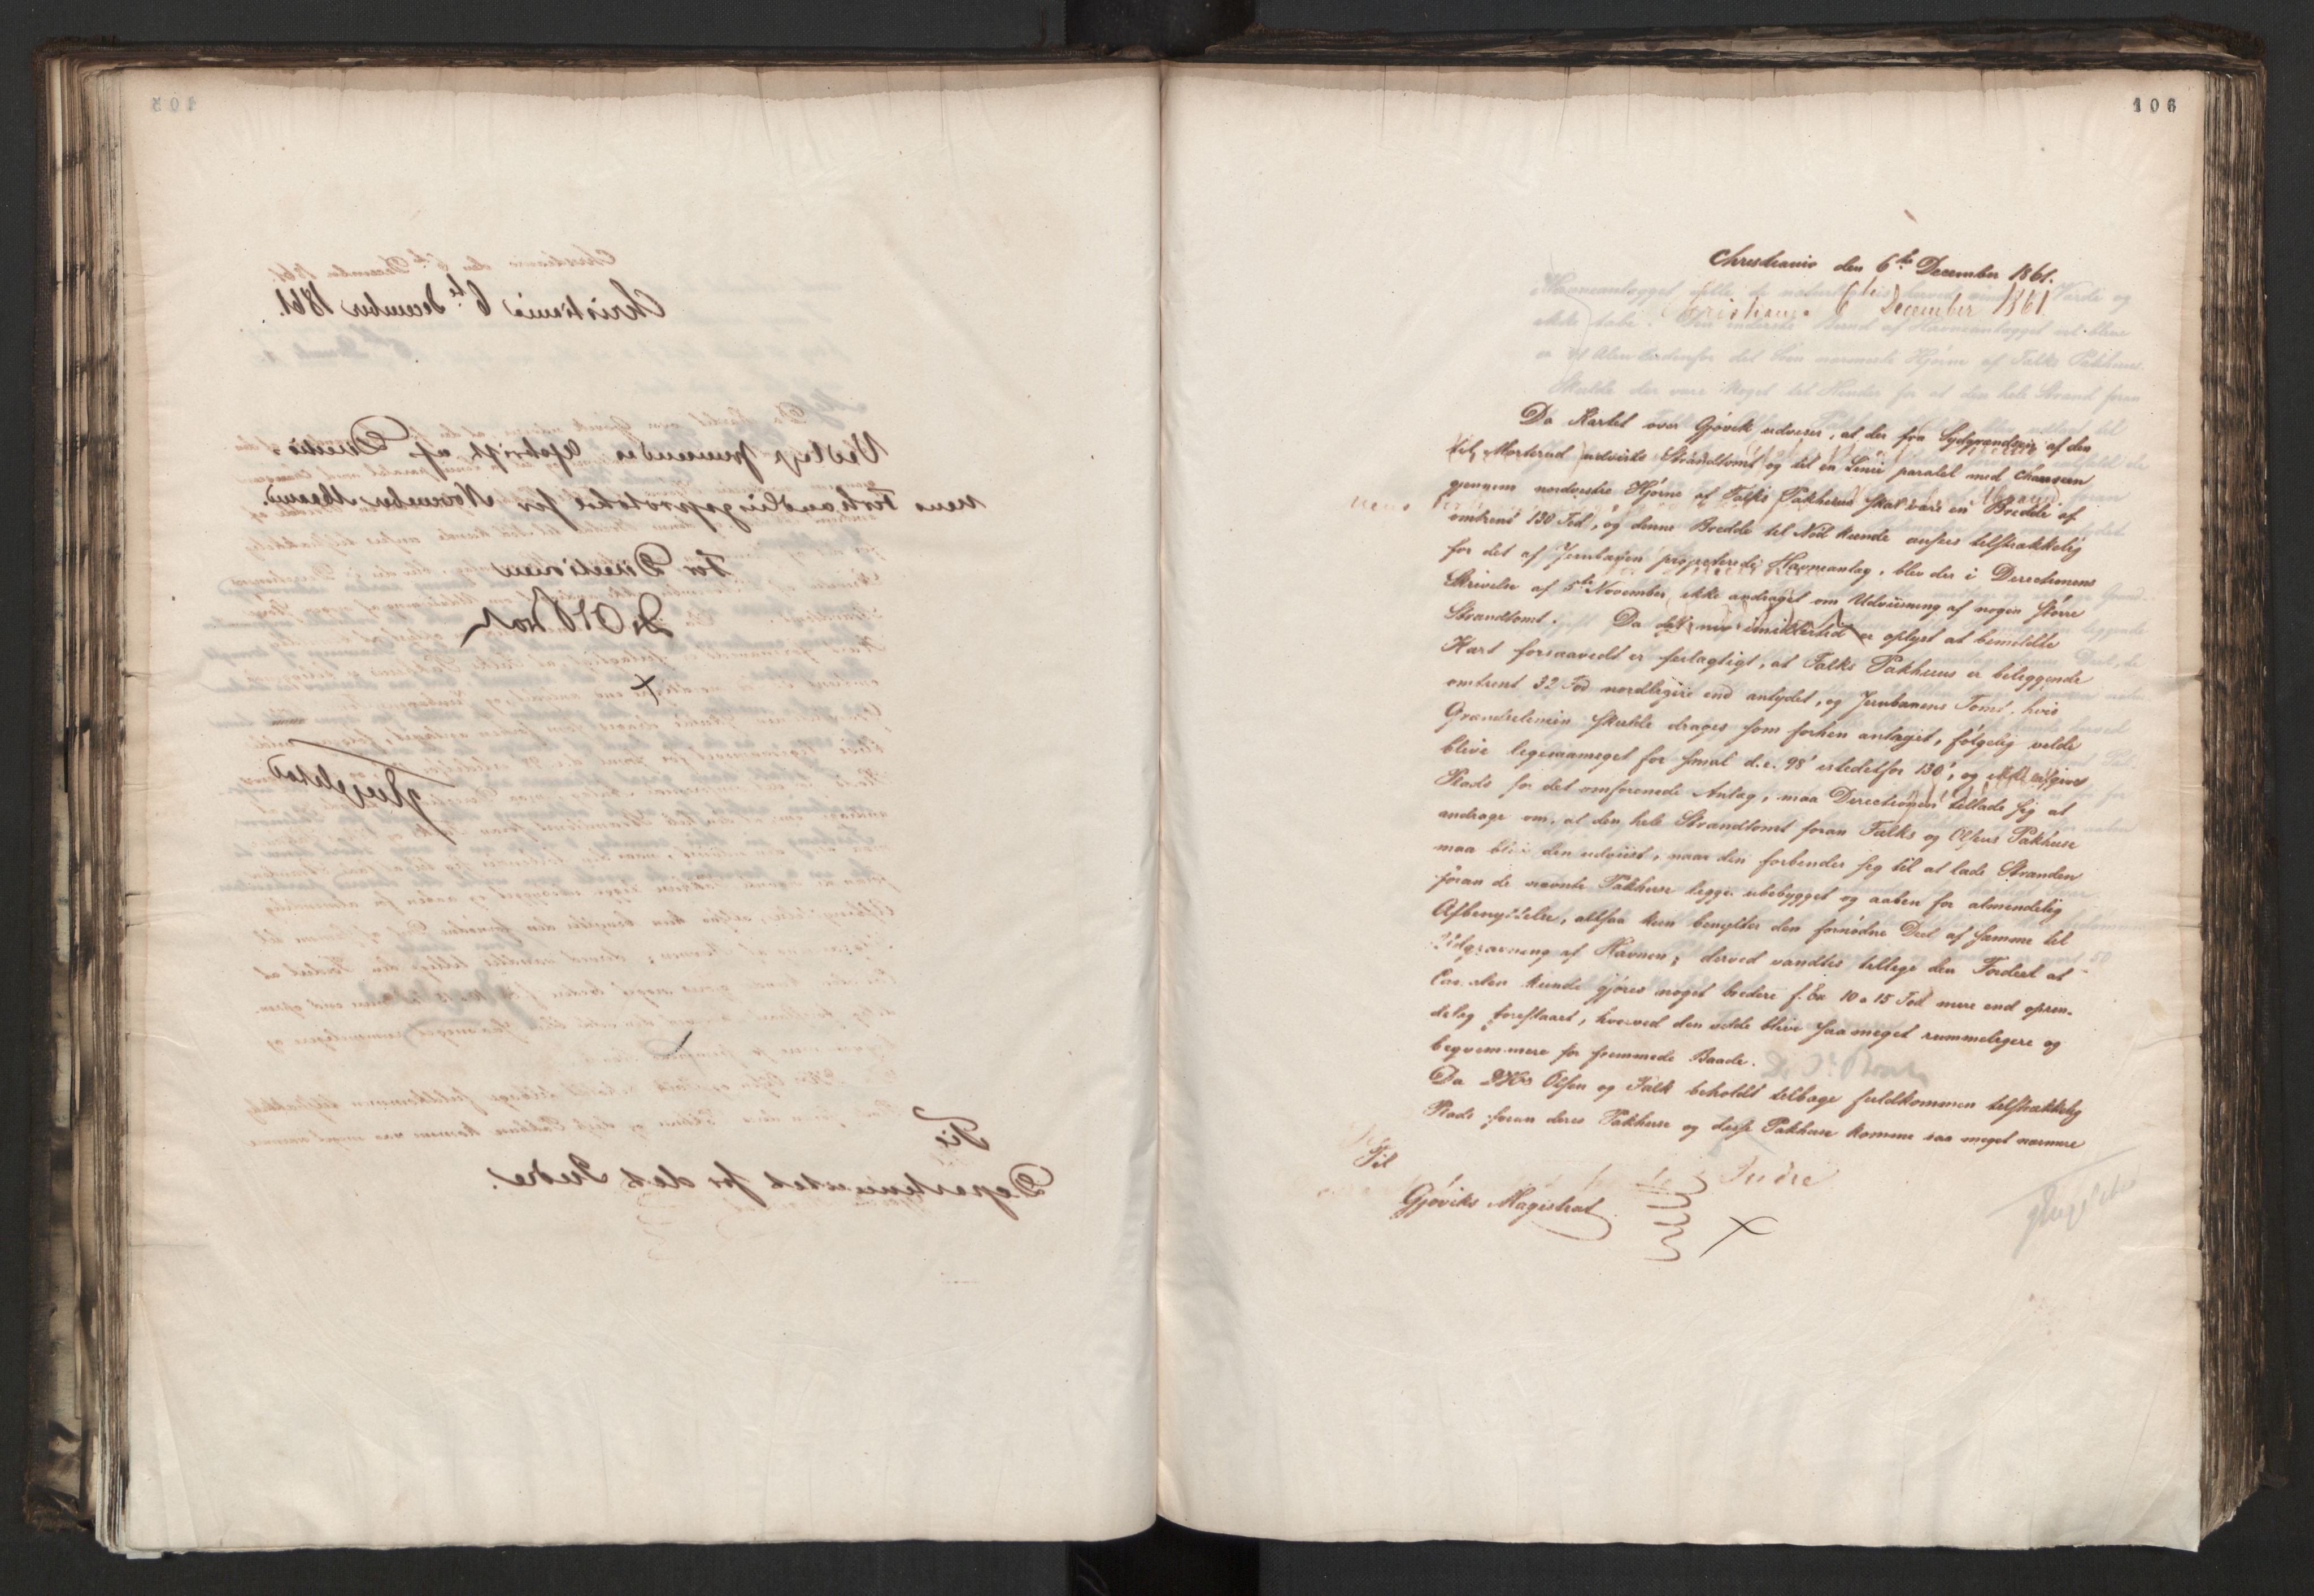 105
Christiania 6te December 1861.
Vedlagt fremsendes Afskrift af Directio-
nens Forhandlingsprotokol for November Maaned.
For Directionen
Til
Departementet for det Indre.
106
Christiania den 6te December 1861.
Da Kartet over Gjøvik udviser, at der fra Sydgrændsen af den
til Morterud udviste Strandtomt og til en Linie paralel med Chauseen
gjennem nordvestre Hjørne af Falks Pakhuus skal være en Bredde af
omtrent 130 Fod, og denne Bredde til Nød kunde ansees tilstrækkelig
for det af Jernbanen projecterede Havneanlæg, blev der i Directionens
Skrivelse af 5te November ikke andraget om Udviisning af nogen større
Strandtomt. Da det nu imidlertid er oplyst at bemeldte
Kart forsaavidt er feilagtigt, at Falks Pakhuus er beliggende
omtrent 32 Fod nordligere end antydet, og Jernbanens Tomt, hvis
Grændselinien skulde drages som forhen antaget, følgelig vilde
blive ligesaameget for smal d. e. 98' istedetfor 130', og ikke afgive
Plads for det omforenede Anlæg, maa Directionen tillade sig at
andrage om, at den hele Strandtomt foran Falks og Olsens Pakhuse
maa blive den udviist, naar den forbinder sig til at lade Stranden
foran de nævnte Pakhuse ligge ubebygget og aaben for almindelig
Afbenyttelse, altsaa kun benytter den fornødne Deel af samme til
Udgravning af Havnen; derved vandtes tillige den Fordeel at
Canalen kunde gjøres noget bredere f. Ex 10 a 15 Fod mere end oprin-
delig foreslaaet, hvorved den vilde blive saameget rummeligere og
beqvemmere for fremmede Baade.
Da DHrr Olsen og Falk beholdt tilbage fuldkommen tilstrækkelig
Plads foran deres Pakhuse og disse Pakhuse komme saa meget nærmere
Til
Gjøviks Magistrat